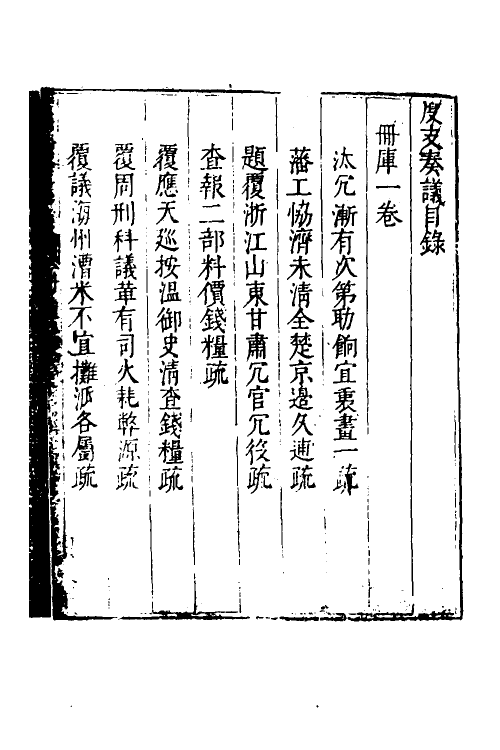 度支奏議目錄
冊庫一卷
汰冗漸有次第助餉宜裏畫一疏
藩工恊濟未清全楚京邊久逋疏
題覆浙江山東甘肅冗官冗役疏
查報二部料價錢糧疏
覆應天廵按温御史清查錢糧疏
覆周刑科議革有司火耗弊源疏
覆議海州漕米不宜攤派各屬疏